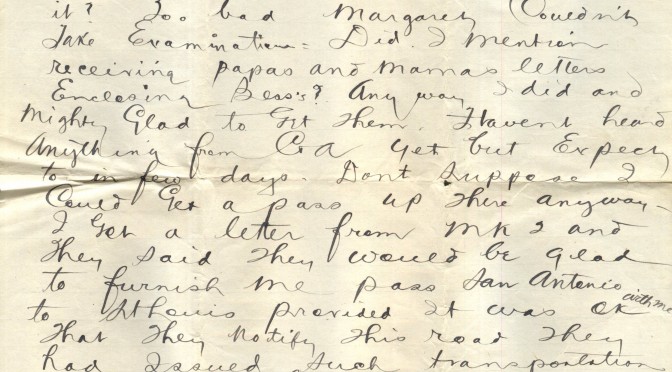 it? Too bad Margaret Couldn't
Take Examination = Did I Mention
receiving papas and Mamas letters
Enclosing Bess's? Any way I did and
Mighty Glad to Get them. Havent heard
Anything from GA yet but Expect
to in few days. Dont Suppose I
Could Get a pass up there anyway -
I Got a letter from MK I and
They said They would be Glad
to furnish Me pass San Antonio
to St Louis provided it was OK with me
That They Notify This road They
had Issued Such transportation